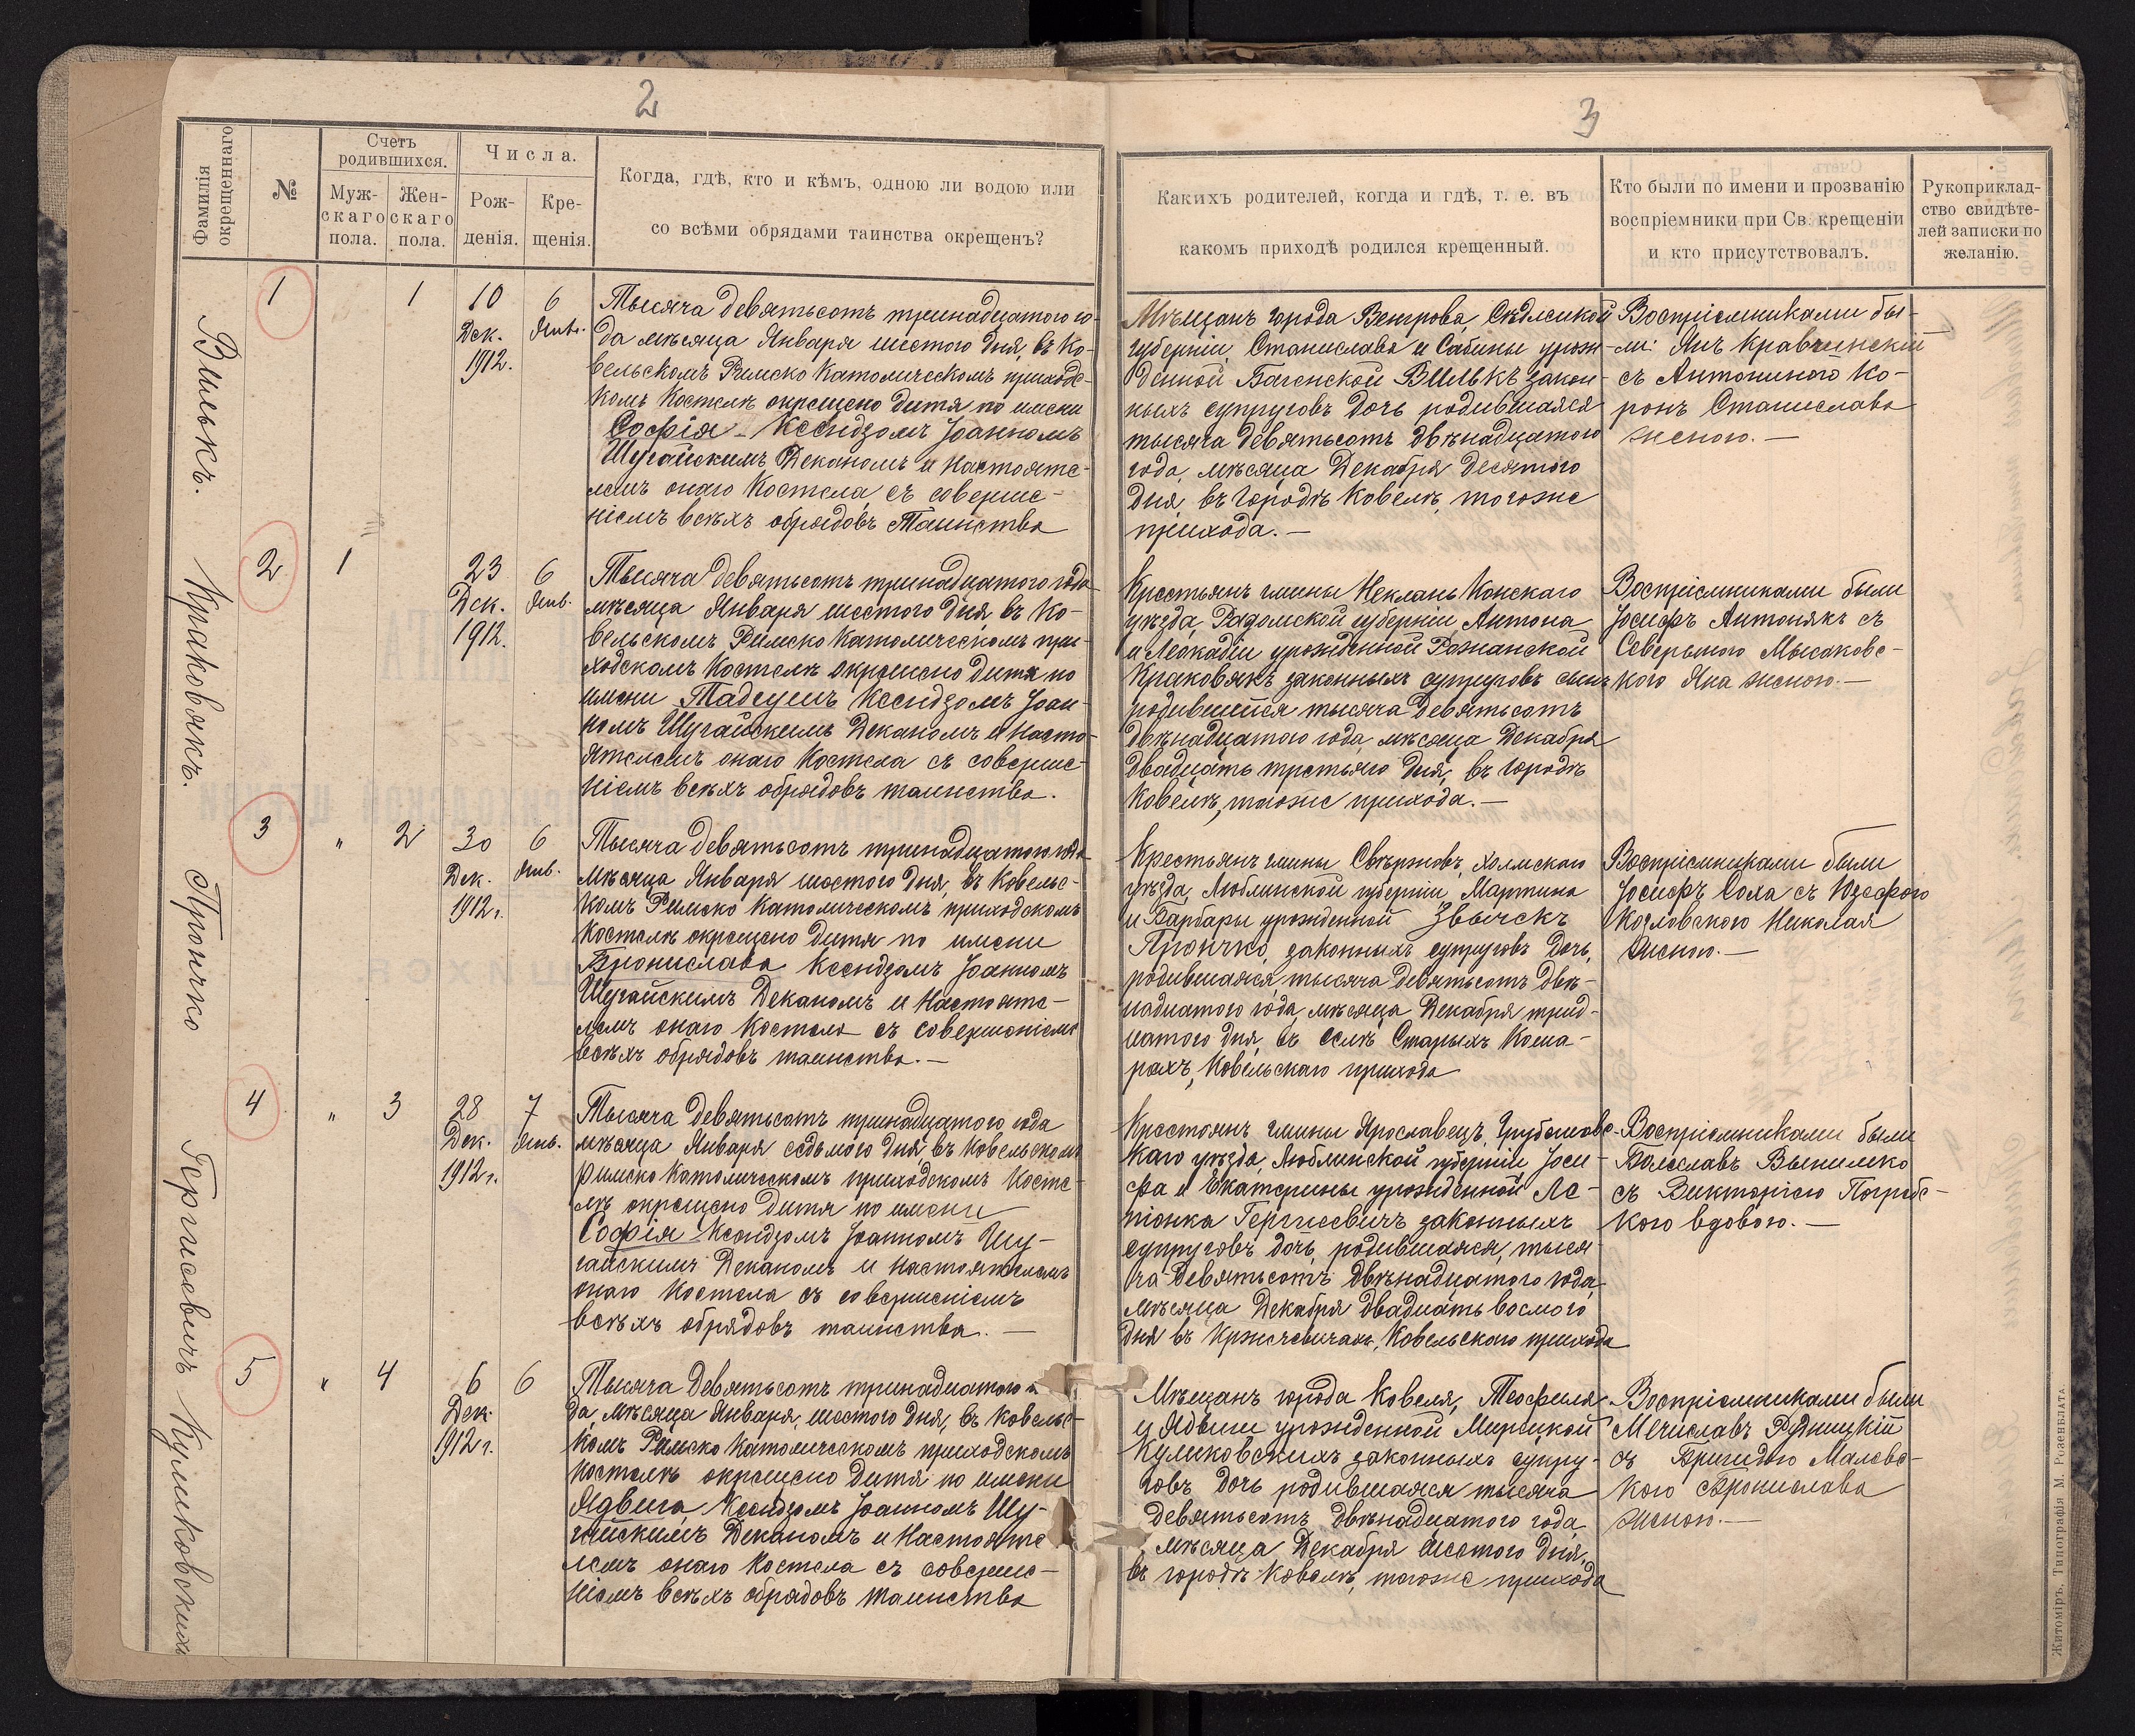 2
Фамилія
окрещеннаго
№
Счетъ
родившихся.
Муж-
скаго
пола.
Жен-
скаго
пола.
Числа.
Рож-
денія.
Кре-
щенія.
Когда, гдѣ, кто и кѣмъ, одною ли водою или
со всѣми обрядами таинства окрещенъ?
Вилькъ.
1
1
10
Дек.
1912.
6
Янв.
Тысяча девятьсотъ тринадцатого го-
да мѣсяца Января шестого дня, въ Ко-
вельскомъ Римско Католическомъ приходс-
комъ Костелѣ окрещено дитя по имени
Софія - Ксендзомъ Іоанномъ
Шугайскимъ Деканомъ и Настояте-
лемъ онаго Костела съ соверше-
ніемъ всѣхъ обрядовъ Таинства
Краковякъ.
2
1
23
Дек.
1912.
6
Янв.
Тысяча девятьсотъ тринадцатого года
мѣсяца Января шестого дня, въ Ко-
вельскомъ Римско Католическомъ при-
ходскомъ Костелѣ окрещено дитя по
имени Тадеушъ Ксендзомъ Іоан-
номъ Шугайскимъ Деканомъ и Насто-
ятелемъ онаго Костела съ соверше-
ніемъ всѣхъ обрядовъ таинства.
Прончко
3
"
2
30
Дек.
1912 г.
6
Янв.
Тысяча девятьсотъ тринадцатого года
мѣсяца Января шестого дня, въ Ковельс-
комъ Римско Католическомъ приходскомъ
Костелѣ окрещено дитя по имени
Бронислава Ксендзомъ Іоанномъ
Шугайскимъ Деканомъ и Настояте-
лемъ онаго Костела съ совершеніемъ
всѣхъ обрядовъ таинства. —
Гергисевичъ
4
"
3
28
Дек.
1912 г.
7
Янв.
Тысяча девятьсотъ тринадцатого года
мѣсяца Января седьмого дня, въ Ковельскомъ
Римско Католическомъ приходскомъ Косте-
лѣ окрещено дитя по имени
Софія Ксендзомъ Іоанномъ Шу-
гайскимъ Деканомъ и Настоятелемъ
онаго Костела съ совершеніемъ
всѣхъ обрядовъ таинства. —
Куликовскихъ
5
"
4
6
Дек.
1912 г.
6
Тысяча девятьсотъ тринадцатого
да, мѣсяца Января, шестого дня, въ Ковельс-
комъ Римско Католическомъ приходскомъ
Костелѣ окрещено дитя по имени
Ядвига, Ксендзомъ Іоанномъ Шу-
гайскимъ Деканомъ и Настояте
лемъ онаго Костела съ соверше-
ніемъ всѣхъ обрядовъ таинства
3
Какихъ родителей, когда и гдѣ, т. е. въ
какомъ приходѣ родился крещенный.
Кто были по имени и прозванію
воспріемники при Св. крещеніи
и кто присутствовалъ.
Рукоприклад-
ство свидѣте-
лей записки по
желанію.
Мѣщанъ города Венгрова, Сѣдлецкой
губерніи, Станислава и Сабины урож-
денной Вилькъ закон-
ныхъ супруговъ дочь родившаяся
тысяча девятьсотъ двѣнадцатого
года, мѣсяца Декабря десятого
дня, въ городѣ Ковелѣ, тогоже
прихода. —
Воспріемниками бы-
ли: Янъ Кравчинскій
съ Антониною Ко-
ронъ Станислава
женою. —
Крестьянъ гмины Неклань Конскаго
уѣзда, Радомской губерніи Антона
и Леокадіи урожденной Рожанской
Краковякъ законныхъ супруговъ сынъ
родившійся тысяча девятьсотъ
двѣнадцатого года мѣсяца Декабря
двадцать третьяго дня, въ городѣ
Ковелѣ, тогоже прихода. —
Воспріемниками были
Іосифъ Антонякъ съ
Северыною Мысаковс-
кого Яна женою. —
Крестьянъ гмины Свѣржовъ, Холмскаго
уѣзда, Люблинской губерніи Мартина
и Барбары урожденной Звычекъ
Прончко, законныхъ супруговъ дочь,
родившаяся, тысяча девятьсотъ двѣ-
надцатого года, мѣсяца Декабря трид-
цатого дня, въ селѣ Старыхъ Коша-
рахъ, Ковельскаго прихода
Воспріемниками были
Іосифъ Соха съ Юзефою
Козловского Николая
женою. —
Крестьянъ гмины Ярославецъ, Грубешовс-
каго уѣзда, Люблинской губерніи Іоси-
фа и Екатерины урожденной Ле-
піонка Гергисевичъ законныхъ
супруговъ дочь, родившаяся, тыся-
ча девятьсотъ двѣнадцатого года,
мѣсяца Декабря двадцать восмого
дня въ Кржечевичахъ, Ковельскаго прихода
Воспріемниками были
Болеславъ
съ Викторіею Погребс-
кого вдовою. —
Мѣщанъ города Ковеля, Теофиля
и Ядвиги урожденной Мирецкой
Куликовскихъ законныхъ супру-
говъ дочь родившаяся тысяча
девятьсотъ двѣнадцатого года,
мѣсяца Декабря шестого дня,
въ городѣ Ковелѣ, тогоже прихода
Воспріемниками были
Мечиславъ Рудницкій
съ Бригидою Малевс-
кого Бронислава
женою. —
Житоміръ. Типографія М. Розенблата